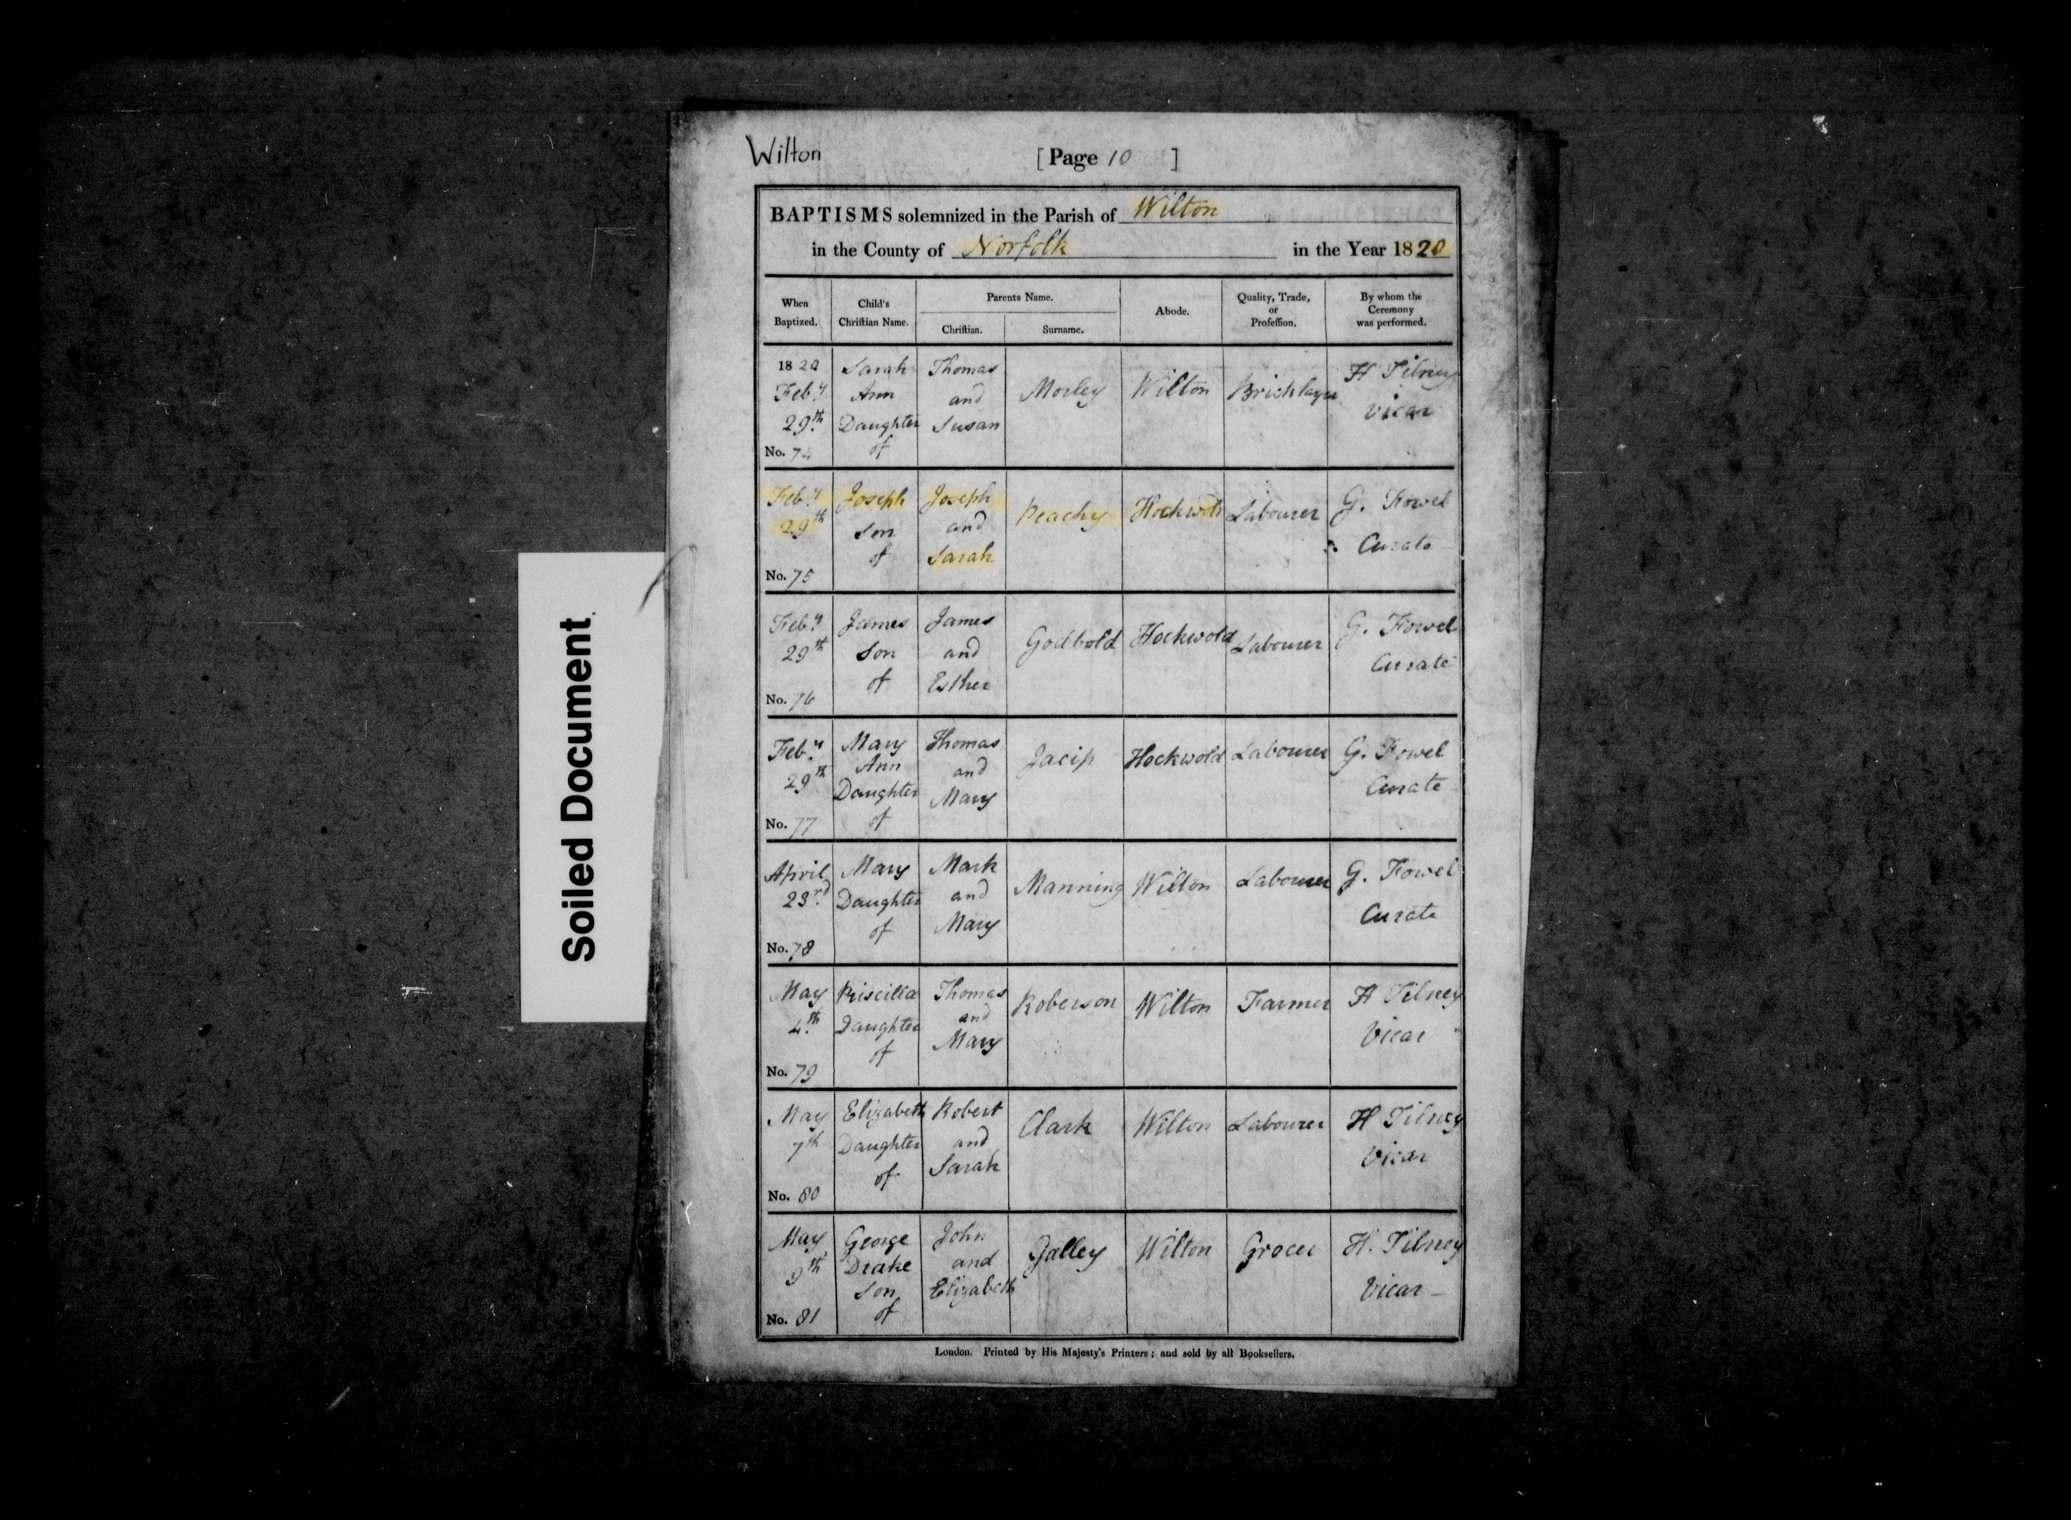 Wilton
[Page 10]
BAPTISMS solemnized in the Parish of Wilton
in the County of Norfolk in the Year 1820
When Baptized.
Child's Christian Name.
Parents Name.
Christian.
Surname.
Abode.
Quality, Trade, or Profession.
By whom the Ceremony was performed.
1820 Feby 29th No. 74
Sarah Ann Daughter of
Thomas and Susan
Morley
Wilton
Bricklayer
H Tilney Vicar
Feby 29th No. 75
Joseph Son of
Joseph and Sarah
Peachy
Hockwold
Labourer
G. Fowel Curate
Feby 29th No. 76
James Son of
James and Esther
Godbold
Hockwold
Labourer
G. Fowel Curate
Feby 29th No. 77
Mary Ann Daughter of
Thomas and Mary
Jacip
Hockwold
Labourer
G. Fowel Curate
April 23rd No. 78
Mary Daughter of
Mark and Mary
Manning
Wilton
Labourer
G. Fowel Curate
May 4th No. 79
Priscilla Daughter of
Thomas and Mary
Roberson
Wilton
Farmer
H Tilney Vicar
May 7th No. 80
Elizabeth Daughter of
Robert and Sarah
Clark
Wilton
Labourer
H Tilney Vicar
May 9th No. 81
George Drake Son of
John and Elizabeth
Galley
Wilton
Grocer
H. Tilney Vicar
London. Printed by His Majesty's Printers; and sold by all Booksellers.
Soiled Document